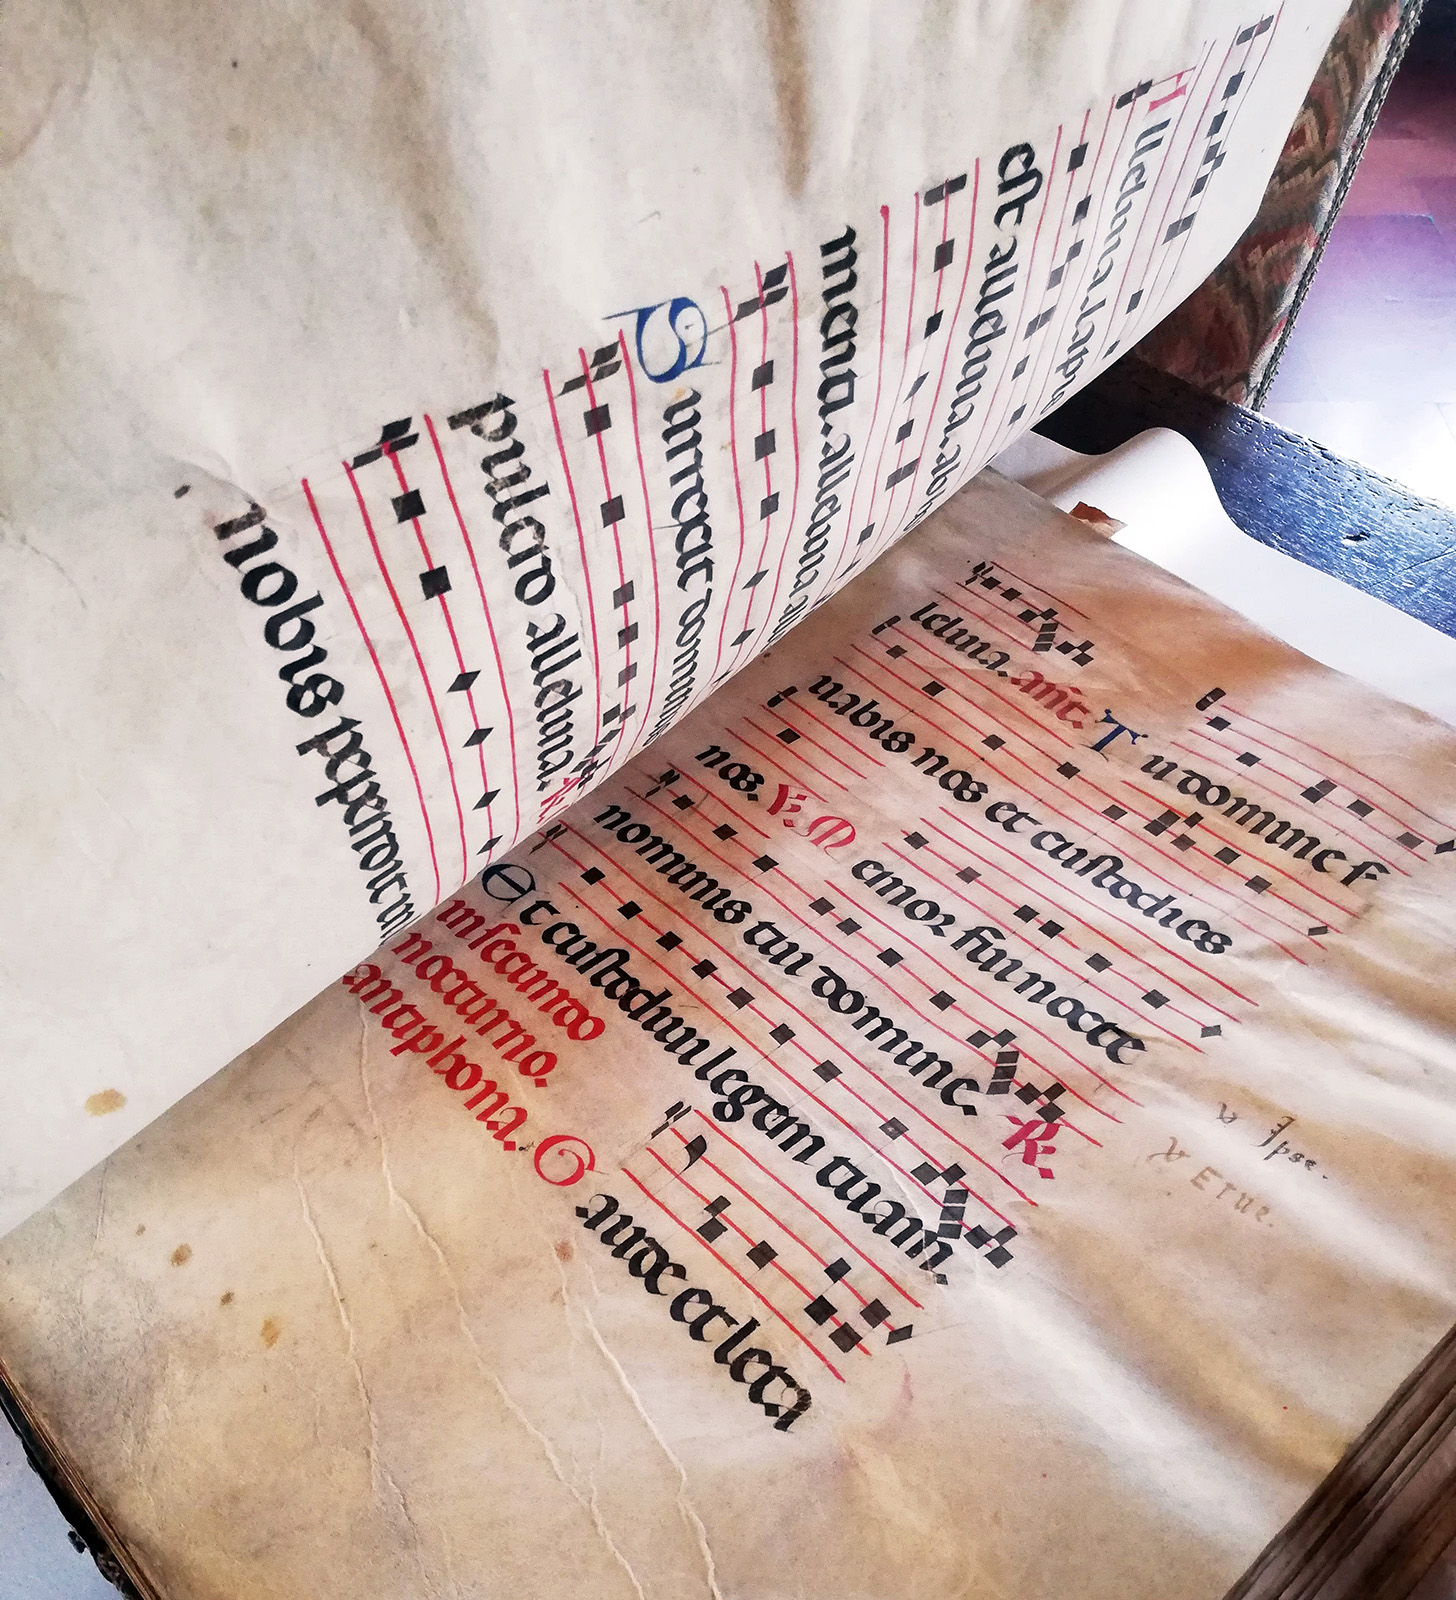 Alleluia. lapi
est alleluia. ab
alleluia al
Surrexit dominus
pulcro alleluia.
nobis pependit in
leluia. añt. Tu domine ſ
uabis nos et cuſtodies
nos. ℣. Memor fui nocte
nominis tui domine. ℟.
Et cuſtodiui legem tuam.
in ſecundo
nocturno.
antiphona. Gaude et leta
℣ Ipse.
℣ Erue.